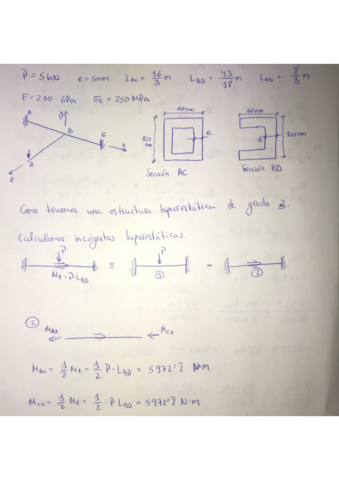 P = 5 kN   e = 5mm   L_AC = 16/3 m   L_BD = 43/18 m   L_AB = 8/3 m
E = 210 GPa   σe = 250 MPa
y
A
B
C
x
D
z
60mm
120 mm
e
Sección AC
60mm
120mm
e
Sección BD
Como tenemos una estructura hiperestática de grado 3.
Calculamos incógnitas hiperestáticas.
P
Mt = P·L_BD
≡
P
①
+
②
②
M_Ax
M_Cx
M_Ax = 1/2 Mt = 1/2 P·L_BD = 5972'2̂ N·m
M_Cx = 1/2 Mt = 1/2 · P·L_BD = 5972'2̂ N·m